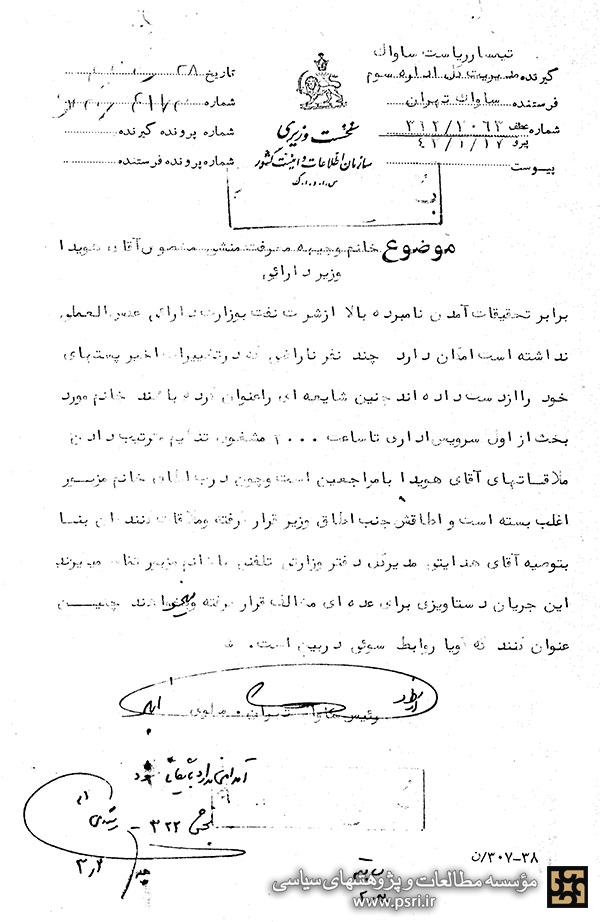 تیمسار ریاست ساواک
گیرنده مدیریت کل اداره سوم
فرستنده ساواک تهران
شماره عطف ۳۱۲/۲۰۶۳
پیرو ۴۱/۱/۱۷
پیوست
نخست وزیری
سازمان اطلاعات و امنیت کشور
س.ا.و.ا.ک
تاریخ ۲۸
شماره
شماره پرونده گیرنده
شماره پرونده فرستنده
موضوع خانم وجیهه معرفت منشی مخصوص آقای هویدا
وزیر دارائی
برابر تحقیقات آمدن نامبرده بالا از شرکت نفت بوزارت دارائی عکس العملی
نداشته است امکان دارد چند نفر ناراضی که در تغییرات اخیر پستهای
خود را از دست داده اند چنین شایعه ای را عنوان کرده باشند خانم مورد
بحث از اول سرویس اداری تا ساعت ۲۰۰۰ مشغول تنظیم و ترتیب دادن
ملاقاتهای آقای هویدا با مراجعین است و چون درب اطاق خانم مزبور
اغلب بسته است و اطاقش جنب اطاق وزیر قرار گرفته و ملاقات کنندگان بنا
بتوصیه آقای هدایتی مدیرکل دفتر وزارتی تلفنی با خانم مزبور تماس میگیرند
این جریان دستاویزی برای عده ای مخالف قرار گرفته و میخواهند چنین
عنوان کنند که گویا روابط سوئی در بین است.
رئیس ساواک تهران. مولوی
بخش ۳۲۲
۳۸-۳۰۷/ن
مؤسسه مطالعات و پژوهشهای سیاسی
www.psri.ir